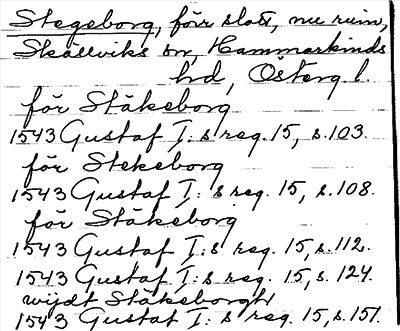 Stegeborg, förr slott, nu ruin,
Skällviks sn, Hammarkinds
hd, Österg. l.
för Stäkeborg
1543 Gustaf I:s reg. 15, s. 103.
för Stekeborg
1543 Gustaf I:s reg. 15, s. 108.
för Stäkeborg
1543 Gustaf I:s reg. 15, s. 112.
1543 Gustaf I:s reg. 15, s. 124.
wijdt Stäkeborgh
1543 Gustaf I:s reg. 15, s. 151.